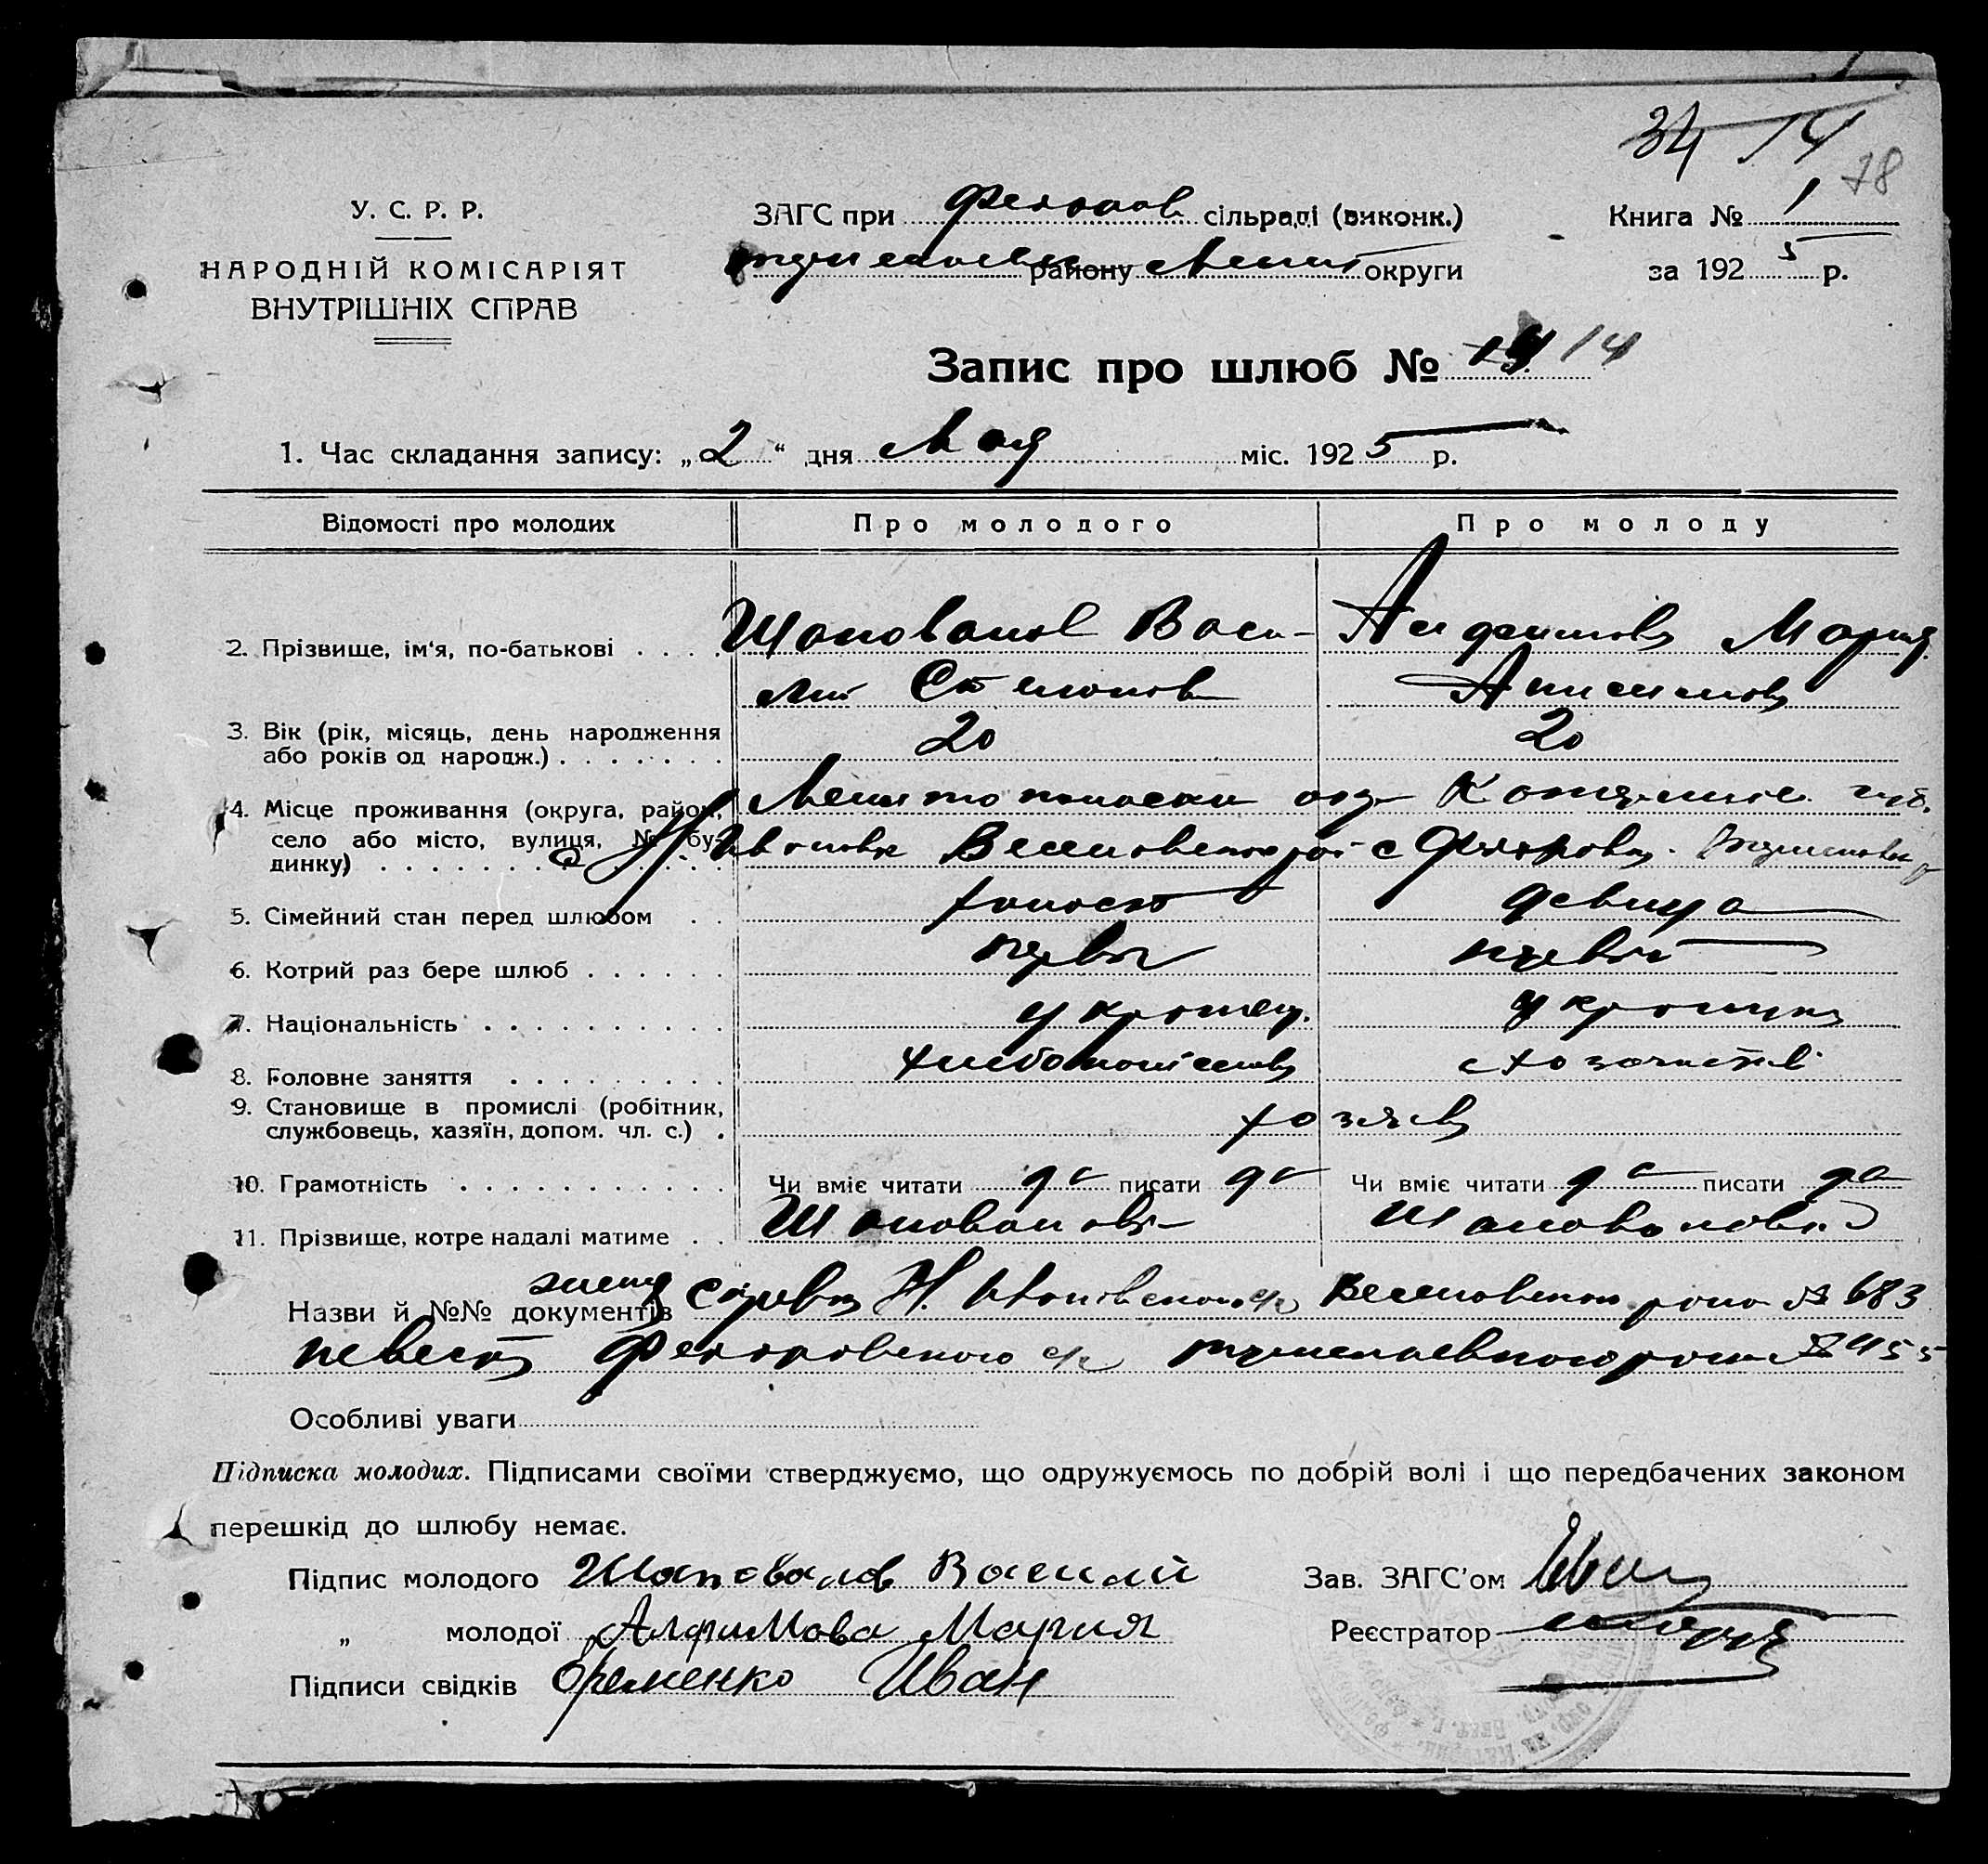 34 14
78
У. С. Р. Р.
НАРОДНІЙ КОМІСАРІЯТ
ВНУТРІШНІХ СПРАВ
ЗАГС при Федоров сільраді (виконк.)
району Мелит округи
Книга № 1
за 1925 р.
Запис про шлюб № 14
1. Час складання запису: „2“ дня Мая міс. 1925 р.
Відомості про молодих Про молодого Про молоду
2. Прізвище, ім'я, по-батькові . . . . Шаповалов Васи- Алфимова Мария
лий Степанов Анисимова
3. Вік (рік, місяць, день народження
або років од народж.) . . . . . . . 20 20
4. Місце проживання (округа, район, Мелитопольски окр
село або місто, вулиця, № бу- Ивановка Веселовского рай с Федоровка
динку) . . . . . . . . . . . .
5. Сімейний стан перед шлюбом . . холост девица
6. Котрий раз бере шлюб . . . . . . первы первый
7. Національність . . . . . . . . . . украинец. украинка
8. Головне заняття . . . . . . . . . хлебопашество
9. Становище в промислі (робітник,
службовець, хазяїн, допом. чл. с.) . хозяева
10. Грамотність . . . . . . . . . . . Чи вміє читати да писати да Чи вміє читати да писати да
11. Прізвище, котре надалі матиме . . Шаповалов Шаповалова
Назви й №№ документів справка Н. Ивановского с/с Веселовского района № 683
невеста Федоровского с/с района № 455
Особливі уваги
Підписка молодих. Підписами своїми стверджуємо, що одружуємось по добрій волі і що передбачених законом
перешкід до шлюбу немає.
Підпис молодого Шаповалов Василий
„ молодої Алфимова Мария
Підписи свідків Єременко Иван
Зав. ЗАГС'ом
Реєстратор